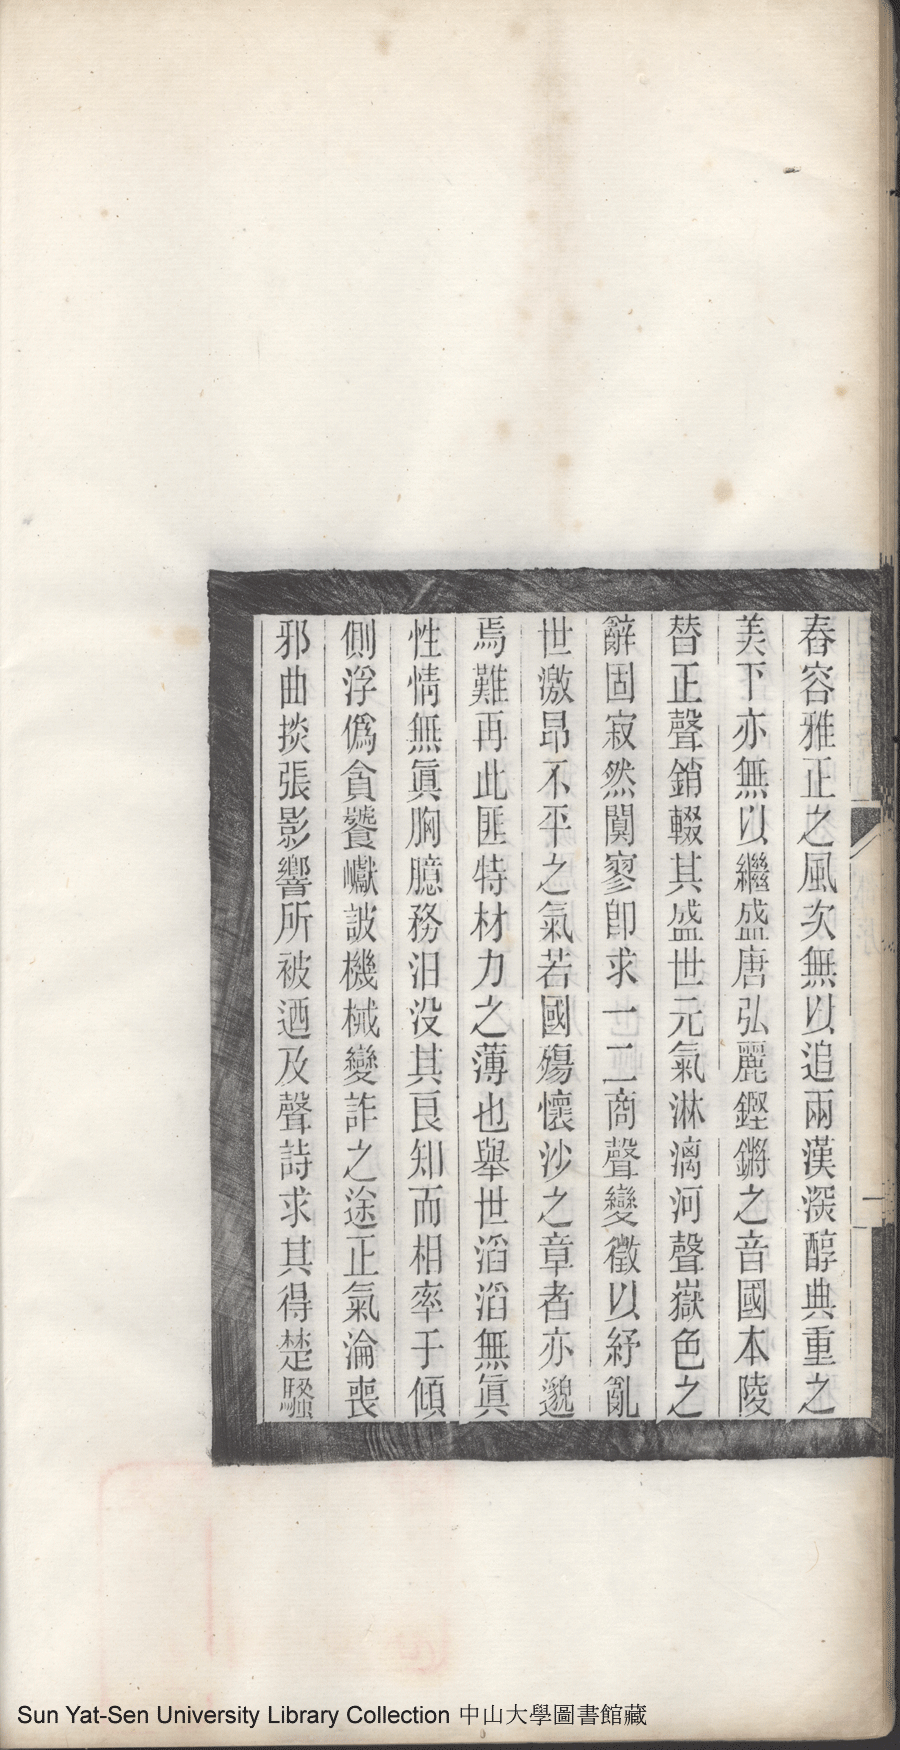 舂容雅正之風次無以追兩漢深醇典重之
美下亦無以繼盛唐弘麗鏗鏘之音國本陵
替正聲銷輟其盛世元氣淋漓河聲嶽色之
辭固寂然闃寥卽求一二商聲變徵以紓亂
世激昂不平之氣若國殤懷沙之章者亦邈
焉難再此匪特材力之薄也舉世滔滔無眞
性情無眞胸臆務汨没其良知而相率于傾
側浮僞貪饕巇詖機械變詐之途正氣淪喪
邪曲掞張影響所被迺及聲詩求其得楚騷
Sun Yat-Sen University Library Collection 中山大學圖書館藏